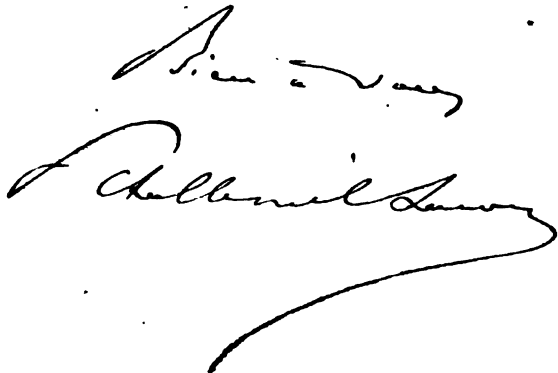 Bien à vous
Challemel Lacour